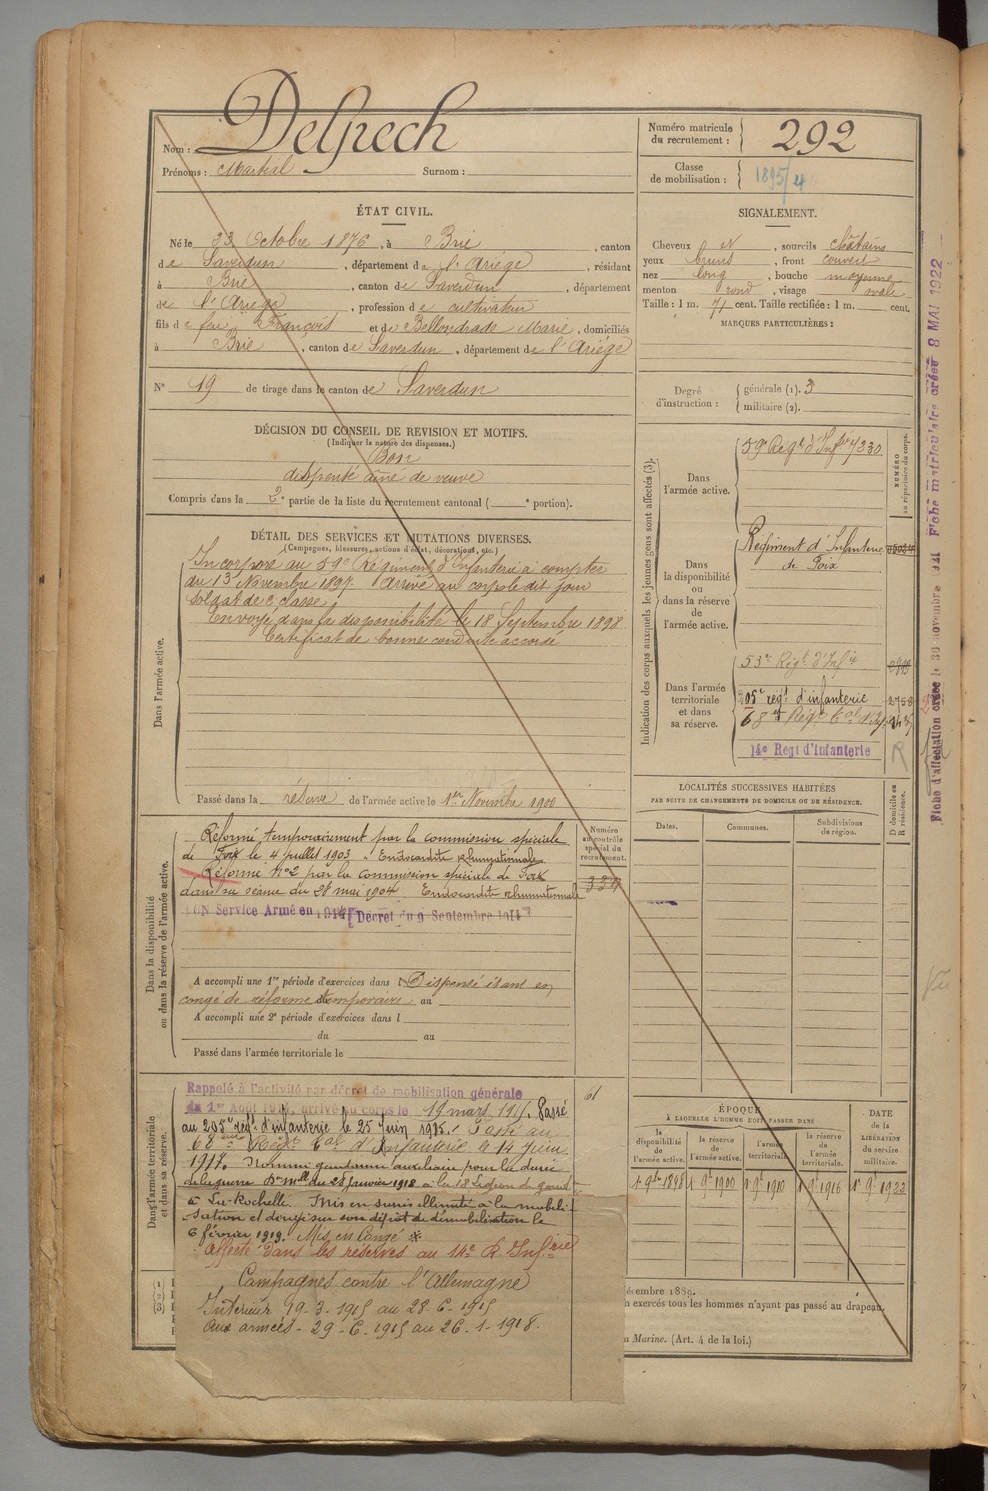 Nom : Delpech
Prénoms : Martial Surnom :
Numéro matricule du recrutement : 292
Classe de mobilisation : 1895/4
ÉTAT CIVIL.
Né le 23 Octobre 1876, à Brie, canton
de Saverdun, département de l'Ariège, résidant
à Brie, canton de Saverdun, département
de l'Ariège, profession de cultivateur
fils de feu François et de Bellondrade Marie, domiciliés
à Brie, canton de Saverdun, département de l'Ariège
N° 19 de tirage dans le canton de Saverdun
SIGNALEMENT.
Cheveux N, sourcils châtains
yeux bruns, front couvert
nez long, bouche moyenne
menton rond, visage ovale
Taille : 1 m. 71 cent. Taille rectifiée : 1 m. cent.
MARQUES PARTICULIÈRES :
Degré d'instruction : générale (1). 3
militaire (2).
DÉCISION DU CONSEIL DE REVISION ET MOTIFS.
(Indiquer la nature des dispenses.)
Bon
dispensé aîné de veuve
Compris dans la 2e partie de la liste du recrutement cantonal ( e portion).
DÉTAIL DES SERVICES ET MUTATIONS DIVERSES.
(Campagnes, blessures, actions d'éclat, décorations, etc.)
Dans l'armée active.
Incorporé au 59e Régiment d'Infanterie à compter
du 13 Novembre 1897. Arrivé au corps le dit jour
soldat de 2e classe.
Envoyé dans la disponibilité le 18 Septembre 1898
Certificat de bonne conduite accordé
Passé dans la réserve de l'armée active le 1er Novembre 1900
Indication des corps auxquels les jeunes gens sont affectés (3).
NUMÉRO au répertoire du corps.
Dans l'armée active.
59e Régt d'Infie 7230
Dans la disponibilité ou dans la réserve de l'armée active.
Régiment d'Infanterie
de Foix
Dans l'armée territoriale et dans sa réserve.
53e Régt d'Infie
205e regt d'infanterie 2758
68e Régt
14e Régt d'Infanterie R
Fiche d'affectation créée le 30 novembre 1941 Fiche matriculaire créée 8 MAI 1922
Dans la disponibilité ou dans la réserve de l'armée active.
Numéro au contrôle spécial du recrutement.
Réformé temporairement par la commission spéciale
de Foix le 4 juillet 1903 "Endocardite rhumatismale
Réformé N°2 par la commission spéciale de Foix
dans sa séance du 28 mai 1904 Endocardite rhumatismale
BON Service Armé en 1914 [Décret du 9 Septembre 1914]
A accompli une 1re période d'exercices dans l Dispensé étant en
congé de réforme temporaire au
A accompli une 2e période d'exercices dans l
du au
Passé dans l'armée territoriale le
LOCALITÉS SUCCESSIVES HABITÉES
PAR SUITE DE CHANGEMENTS DE DOMICILE OU DE RÉSIDENCE.
Dates. Communes. Subdivisions de région. D domicile ou R résidence.
Dans l'armée territoriale et dans sa réserve.
Rappelé à l'activité par décret de mobilisation générale
du 1er Août 1914, arrivé au corps le 19 mars 1915. Passé
au 205e regt d'infanterie le 25 Juin 1915. Passé au
68ème Régt d'Infanterie le 14 Juin
1917. Nommé gendarme auxiliaire pour la durée
de la guerre Don mlle du 28 Janvier 1918 à la 18 Légion de gend
à La Rochelle. Mis en sursis illimité à la mobili-
sation et dirigé sur son dépôt de démobilisation le
6 février 1919. Mis en Congé
Affecté dans les réserves au 14e R Infrie
Campagnes contre l'Allemagne
Intérieur 19-3-1915 au 28-6-1915
Aux armées - 29-6-1915 au 26-1-1918.
61
ÉPOQUE
À LAQUELLE L'HOMME DOIT PASSER DANS
la disponibilité de l'armée active. la réserve de l'armée active. l'armée territoriale. la réserve de l'armée territoriale.
DATE de la LIBÉRATION du service militaire.
1er 9bre 1898 1er 9bre 1900 1er 9bre 1910 1er 9bre 1916 1er 9bre 1922
décembre 1889.
n exercés tous les hommes n'ayant pas passé au drapeau.
a Marine. (Art. 4 de la loi.)
(1)
(2)
(3)